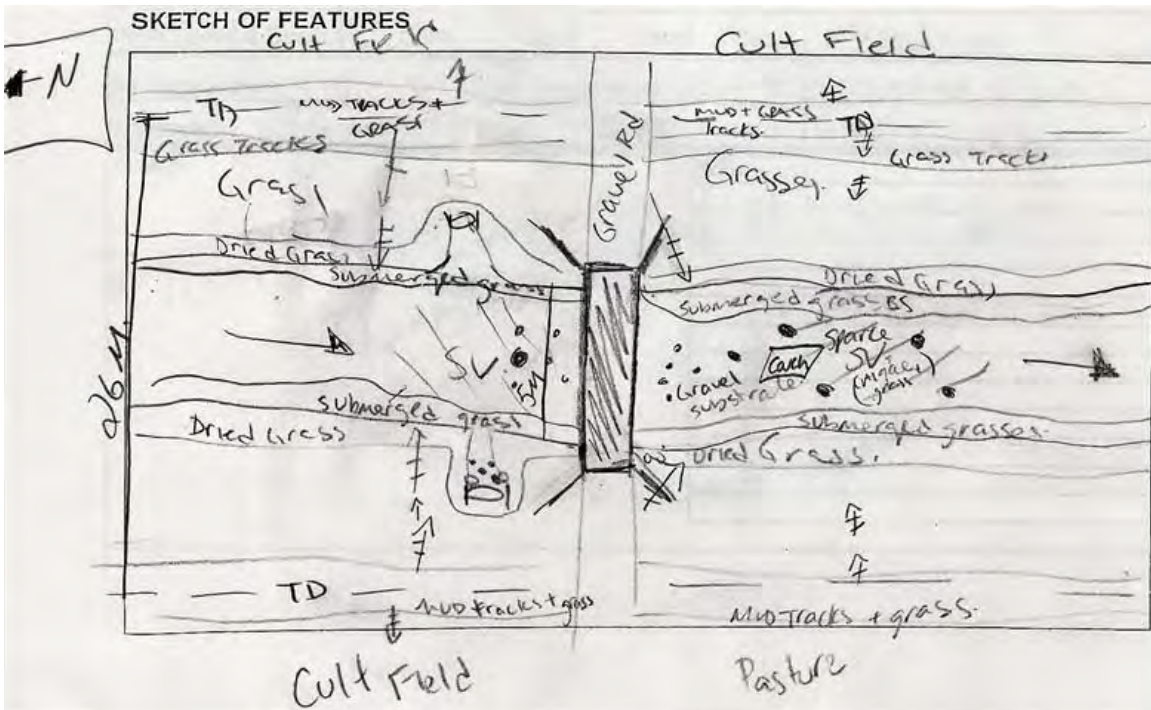 SKETCH OF FEATURES
Cult Field
N
TD
MUD TRACKS +
GRASS
Grass Tracks
Grass
Dried Grass
Submerged grass
26 M
SV
5M
submerged grass
Dried Grass
TD
MUD tracks + grass
Cult Field
Gravel Rd
Cult Field
MUD + GRASS
Tracks.
TD
Grass Tracks
Grasses.
Dried Grass
Submerged grass BS
Sparce
SV
(Algae,
grass)
Gravel
substrate
submerged grasses.
Dried Grass.
MUD Tracks + grass.
Pasture